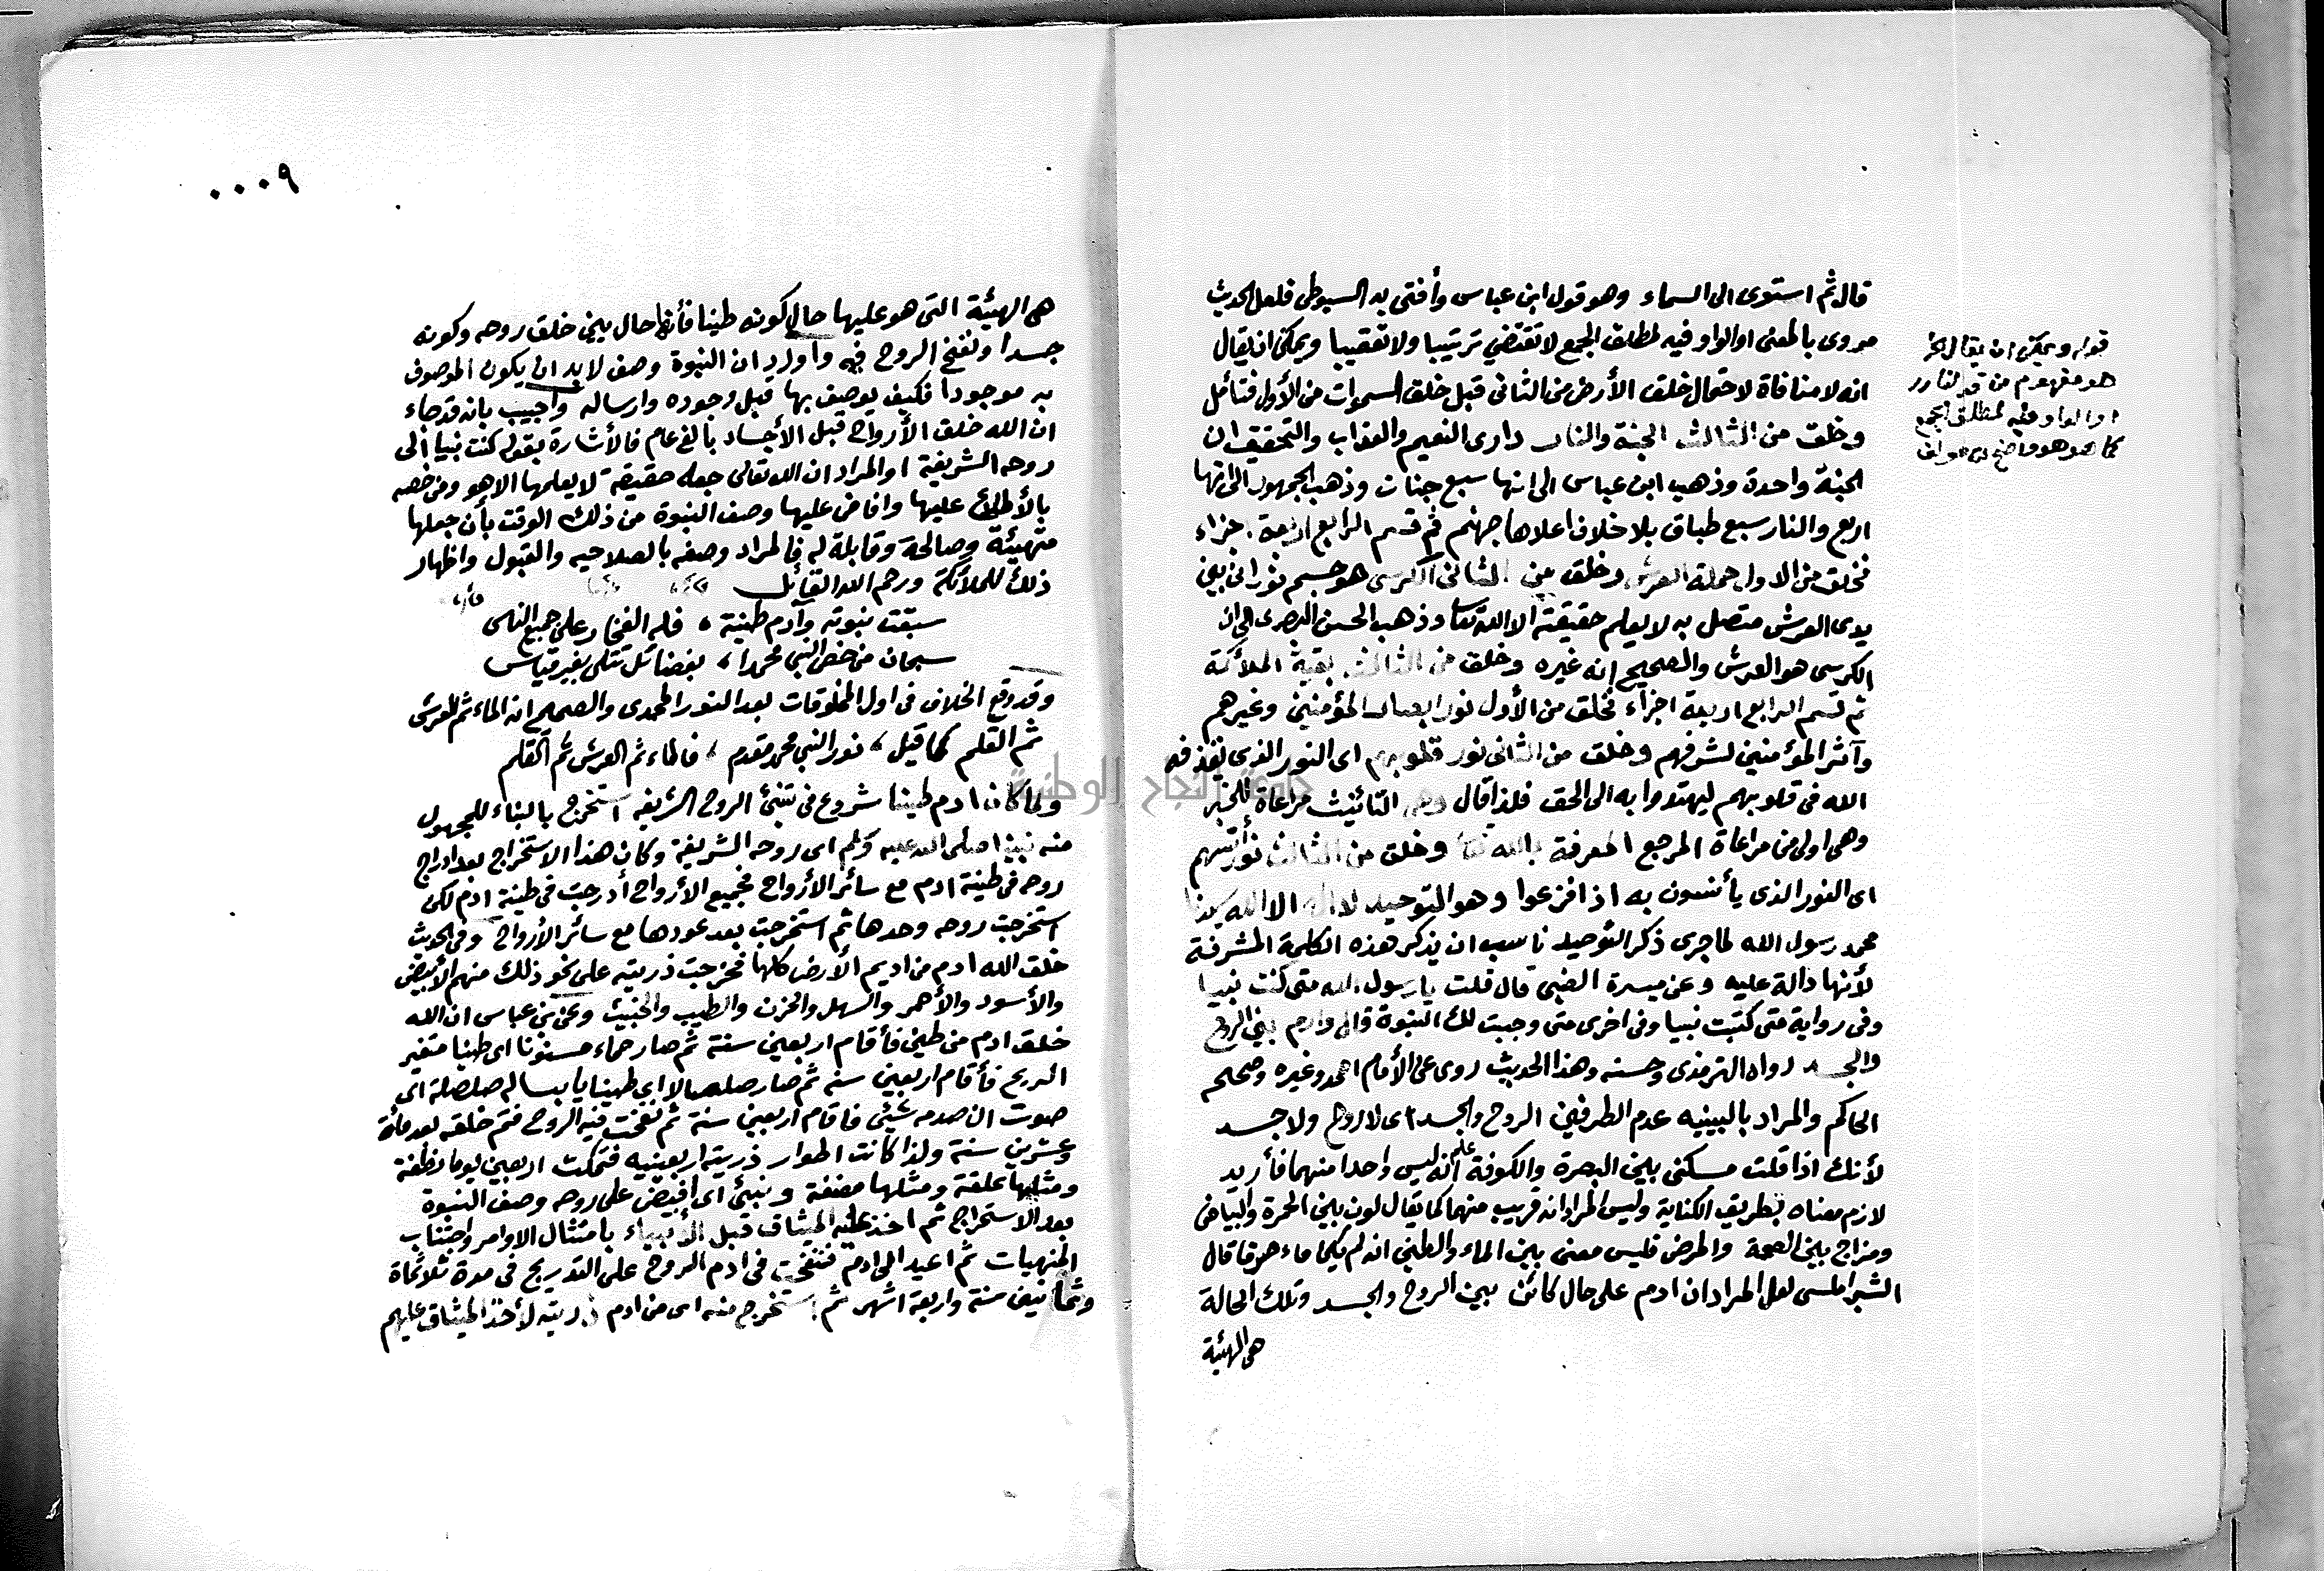 قال ثم استوى الى السماء وهو قول ابن عباس وأفتى به السيوطي فلعل الحديث
مروى بالمعنى او الواو فيه لمطلق الجمع لا تقتضي ترتيبا ولا تعقيبا ويمكن ان يقال
انه لا منافاة لاحتمال خلق الأرض من الثانى قبل خلق السموات من الأول فتأمل
وخلق من الثالث الجنة والنار دارى النعيم والعذاب والتحقيق ان
الجنة واحدة وذهب ابن عباس الى انها سبع جنات وذهب الجمهور الى انها
اربع والنار سبع طباق بلا خلاف اعلاها جهنم ثم قسم الرابع اربعة اجزاء
فخلق من الاول حملة العرش وخلق من الثانى الكرسى هو جسم نورانى بين
يدى العرش متصل به لا يعلم حقيقته الا الله تعا وذهب الحسن البصرى الى ان
الكرسى هو العرش والصحيح انه غيره وخلق من الثالث بقية الملائكة
ثم قسم الرابع اربعة اجزاء فخلق من الأول نور ابصار المؤمنين وغيرهم
وآثر المؤمنين لشرفهم وخلق من الثانى نور قلوبهم اى النور الذى يقذفه
الله فى قلوبهم ليهتدوا به الى الحق فلذا قال وهى التأنيث مراعاة للخبر
وهى اولى من مراعاة المرجع المعرفة بالله تعا وخلق من الثالث نور أنسهم
اى النور الذى يأنسون به اذا فزعوا وهو التوحيد لا اله الا الله سيدنا
محمد رسول الله لما جرى ذكر التوحيد ناسب ان يذكر هذه الكلمة المشرفة
لأنها دالة عليه وعن ميسرة الضبى قال قلت يا رسول الله متى كنت نبيا
وفى رواية متى كتبت نبيا وفى اخرى متى وجبت لك النبوة قال وادم بين الروح
والجسد رواه الترمذى وحسنه وهذا الحديث روى عن الأمام احمد وغيره وصححه
الحاكم والمراد بالبينيه عدم الطرفين الروح والجسد اى لا روح ولا جسد
لأنك اذا قلت مسكنى بين البصرة والكوفة علم انه ليس واحدا منهما فأريد
لازم معناه بطريق الكناية وليس المراد انه قريب منهما كما يقال لون بين الحمرة والبياض
ومزاج بين الصحة والمرض فليس معنى بين الماء والطين انه لم يكن ماء صرفا قال
الشبراملسى لعل المراد ان ادم على حال كائن بين الروح والجسد وتلك الحالة
هى الهيئة
قوله ويمكن ان يقال الخ
هو مفهوم من
او الواو فيه لمطلق الجمع
كما هو واضح
٠٠٠٩
هى الهيئة التى هو عليها حال كونه طينا فأنها حال بين خلق روحه وكونه
جسدا ونفخ الروح فيه واورد ان النبوة وصف لا بد ان يكون الموصوف
به موجودا فكيف يوصف بها قبل وجوده وارساله واجيب بانه قد جاء
ان الله خلق الأرواح قبل الأجساد بألفى عام فالأشارة بقوله كنت نبيا الى
روحه الشريفة او المراد ان الله تعالى جعله حقيقة لا يعلمها الا هو ومن خصه
بالأطلاع عليها وافاض عليها وصف النبوة من ذلك الوقت بأن جعلها
متهيئة وصالحة وقابلة له فالمراد وصفه بالصلاحيه والقبول واظهار
ذلك للملائكة ورحم الله القائل
سبقت نبوته وآدم طينة ، فله الفخار على جميع الناس
سبحان من خص النبى محمدا ، بفضائل تتلى بغير قياس
وقد وقع الخلاف فى اول المخلوقات بعد النور المحمدى والصحيح انه الماء ثم العرش
ثم القلم كما قيل ، نور النبى محمد مقدم ، فالماء ثم العرش ثم القلم
ولما كان ادم طينا شروع فى تنبئ الروح الشريفه استخرج بالبناء للمجهول
منه نبينا صلى الله عليه وسلم اى روحه الشريفة وكان هذا الاستخراج بعد ادراج
روحه فى طينة ادم مع سائر الأرواح فجميع الأرواح أدرجت فى طينة ادم لكن
استخرجت روحه وحدها ثم استخرجت بعد عودها مع سائر الأرواح وفى الحديث
خلق الله ادم من اديم الأرض كلها فخرجت ذريته على نحو ذلك منهم الأبيض
والأسود والأحمر والسهل والحزن والطيب والخبيث وعن بن عباس ان الله
خلق ادم من طين فأقام اربعين سنة ثم صار حماء مسنونا اى طينا متغير
الريح فأقام اربعين سنه ثم صار صلصالا اى طينا يابسا له صلصلة اى
صوت ان صدمه شيئ فاقام اربعين سنة ثم نفخت فيه الروح فتم خلقه بعد مائة
وعشرين سنة ولذا كانت اطوار ذريته اربعينيه فتمكث اربعين يوما نطفة
ومثلها علقة ومثلها مضغة ونبئ اى افيض على روحه وصف النبوة
بعد الاستخراج ثم اخذ عليه الميثاق قبل الأنبياء بامتثال الاوامر واجتناب
المنهيات ثم اعيد الى ادم فنفخت فى ادم الروح على التدريج فى مدة ثلاثماة
وثمانين سنة واربعة اشهر ثم استخرج منه اى من ادم ذريته لأخذ الميثاق عليهم
جامعة النجاح الوطنية